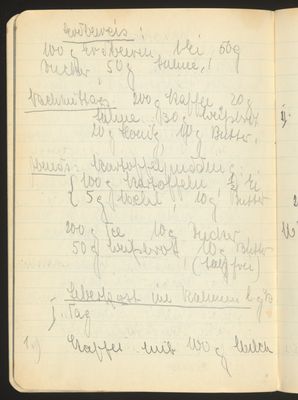 Erdbeereis:
100 g Erdbeeren, 50g
Zucker, 50g Sahne,!
Nachmittag: 200g Kaffee 20g
Sahne, 30g Weißbrot
20g Honig, 10g Butter,
Abend: Kartoffelpudding:
100g Kartoffeln ½ Ei
5g Mehl, 10g Butter
200g Tee 10g Zucker,
50g Weißbrot 10g Butter
(salzfrei)
Leberkost im
Tag
1.) Kaffee mit 100g Milch